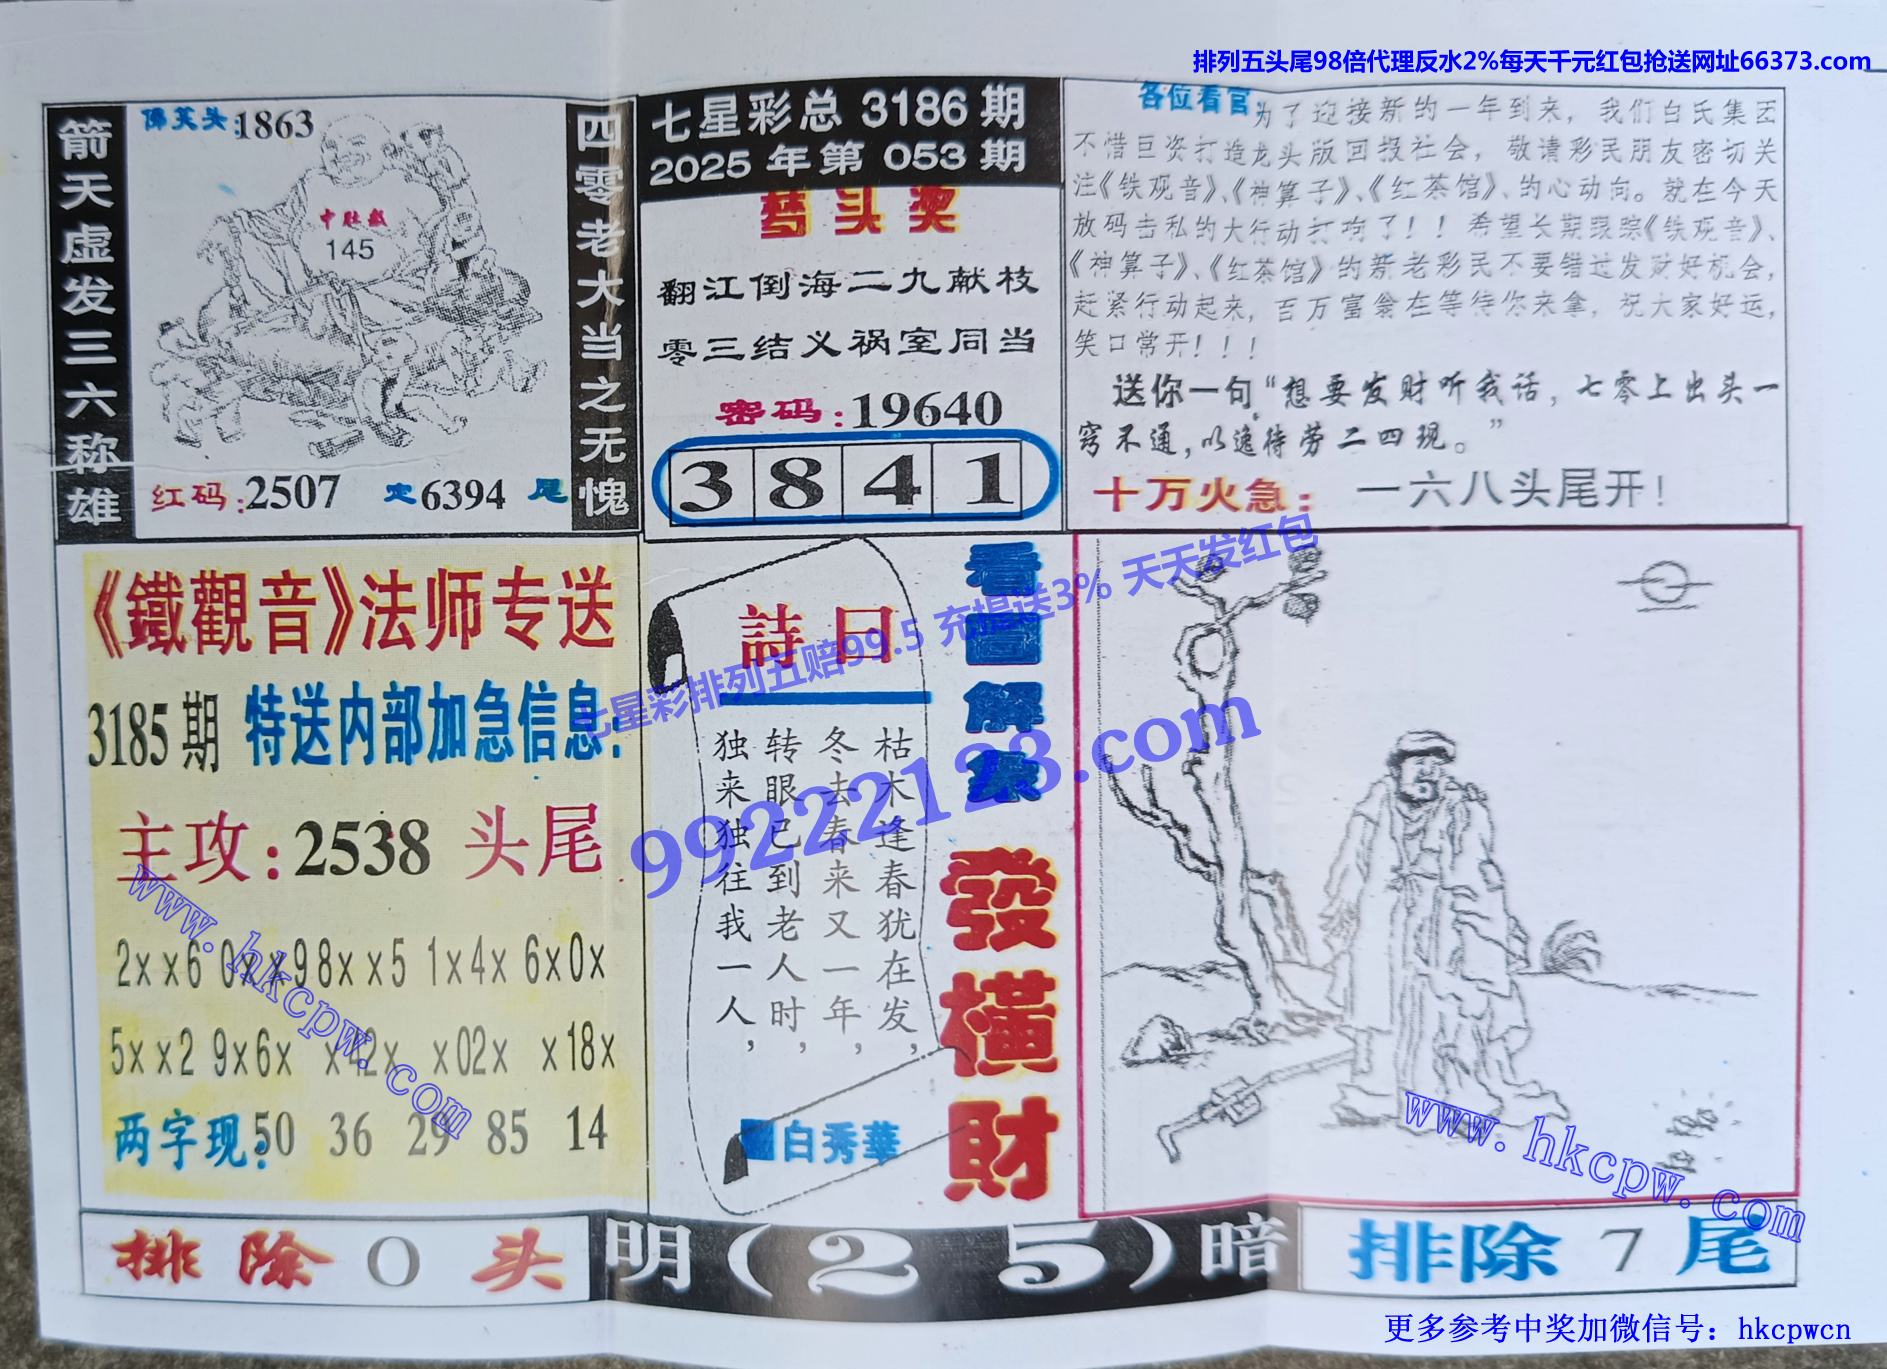 排列五头尾98倍代理反水2%每天千元红包抢送网址66373.com
箭天虚发三六称雄
佛笑头:1863
中肚数
145
红码:2507 定6394尾
四零老大当之无愧
七星彩总 3186 期
2025 年第 053 期
梦头奖
翻江倒海二九献枝
零三结义祸室同当
密码:19640
3 8 4 1
各位看官为了迎接新的一年到来，我们白氏集团
不惜巨资打造龙头版回报社会，敬请彩民朋友密切关
注《铁观音》、《神算子》、《红茶馆》、的心动向。就在今天
放码击私的大行动打响了！！希望长期跟踪《铁观音》、
《神算子》、《红茶馆》的新老彩民不要错过发财好机会，
赶紧行动起来，百万富翁在等待你来拿，祝大家好运，
笑口常开！！！
送你一句“想要发财听我话，七零上出头一
窍不通，以逸待劳二四现。”
十万火急：一六八头尾开！
《鐵觀音》法师专送
3185期 特送内部加急信息:
主攻:2538 头尾
2××6 0××9 8××5 1×4× 6×0×
5××2 9×6× ×42× ×02× ×18×
两字现:50 36 29 85 14
詩曰
枯木逢春犹在发，
冬去春来又一年，
转眼已到老人时，
独来独往我一人，
白秀華
看圖解梦
發橫財
七星彩排列五赔99.5 充提送3% 天天发红包
99222123.com
www.hkcpw.com
www.hkcpw.com
排除 0 头
明(2 5)暗
排除 7 尾
更多参考中奖加微信号：hkcpwcn